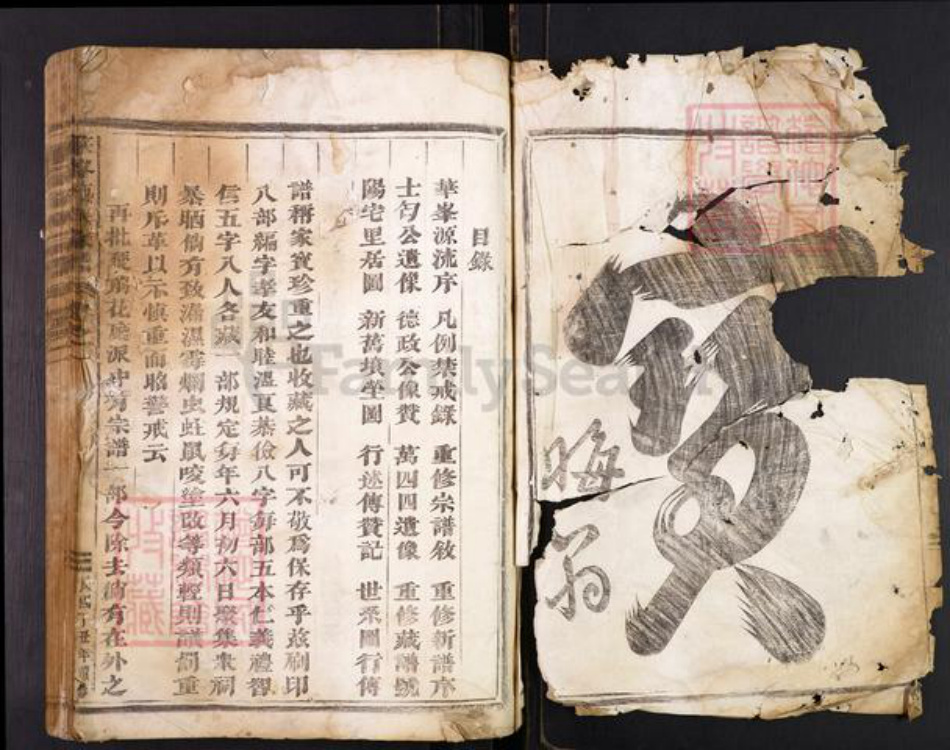 寶
晦翁
目錄
華峯源流序 凡例禁戒錄 重修宗譜敘 重修新譜序
士勻公遺像 德政公像賛 萬四四遺像 重修藏譜號
陽宅里居圖 新萬墳塋圖 行述傳賛記 世系圖行傳
譜稱家寳珍重之也收藏之人可不敬爲保存乎玆刷印
八部編字孝友和睦溫良恭儉八字每部五本仁義禮智
信五字八人各藏一部規定每年六月初六日聚集衆祠
暴晒倘有致漏濕霉爛虫蛀鼠咬塗改等類輕則議罰重
則斥革以示慎重而昭警戒云
再批 花 派 宗譜一部今除去倘有在外之
FamilySearch